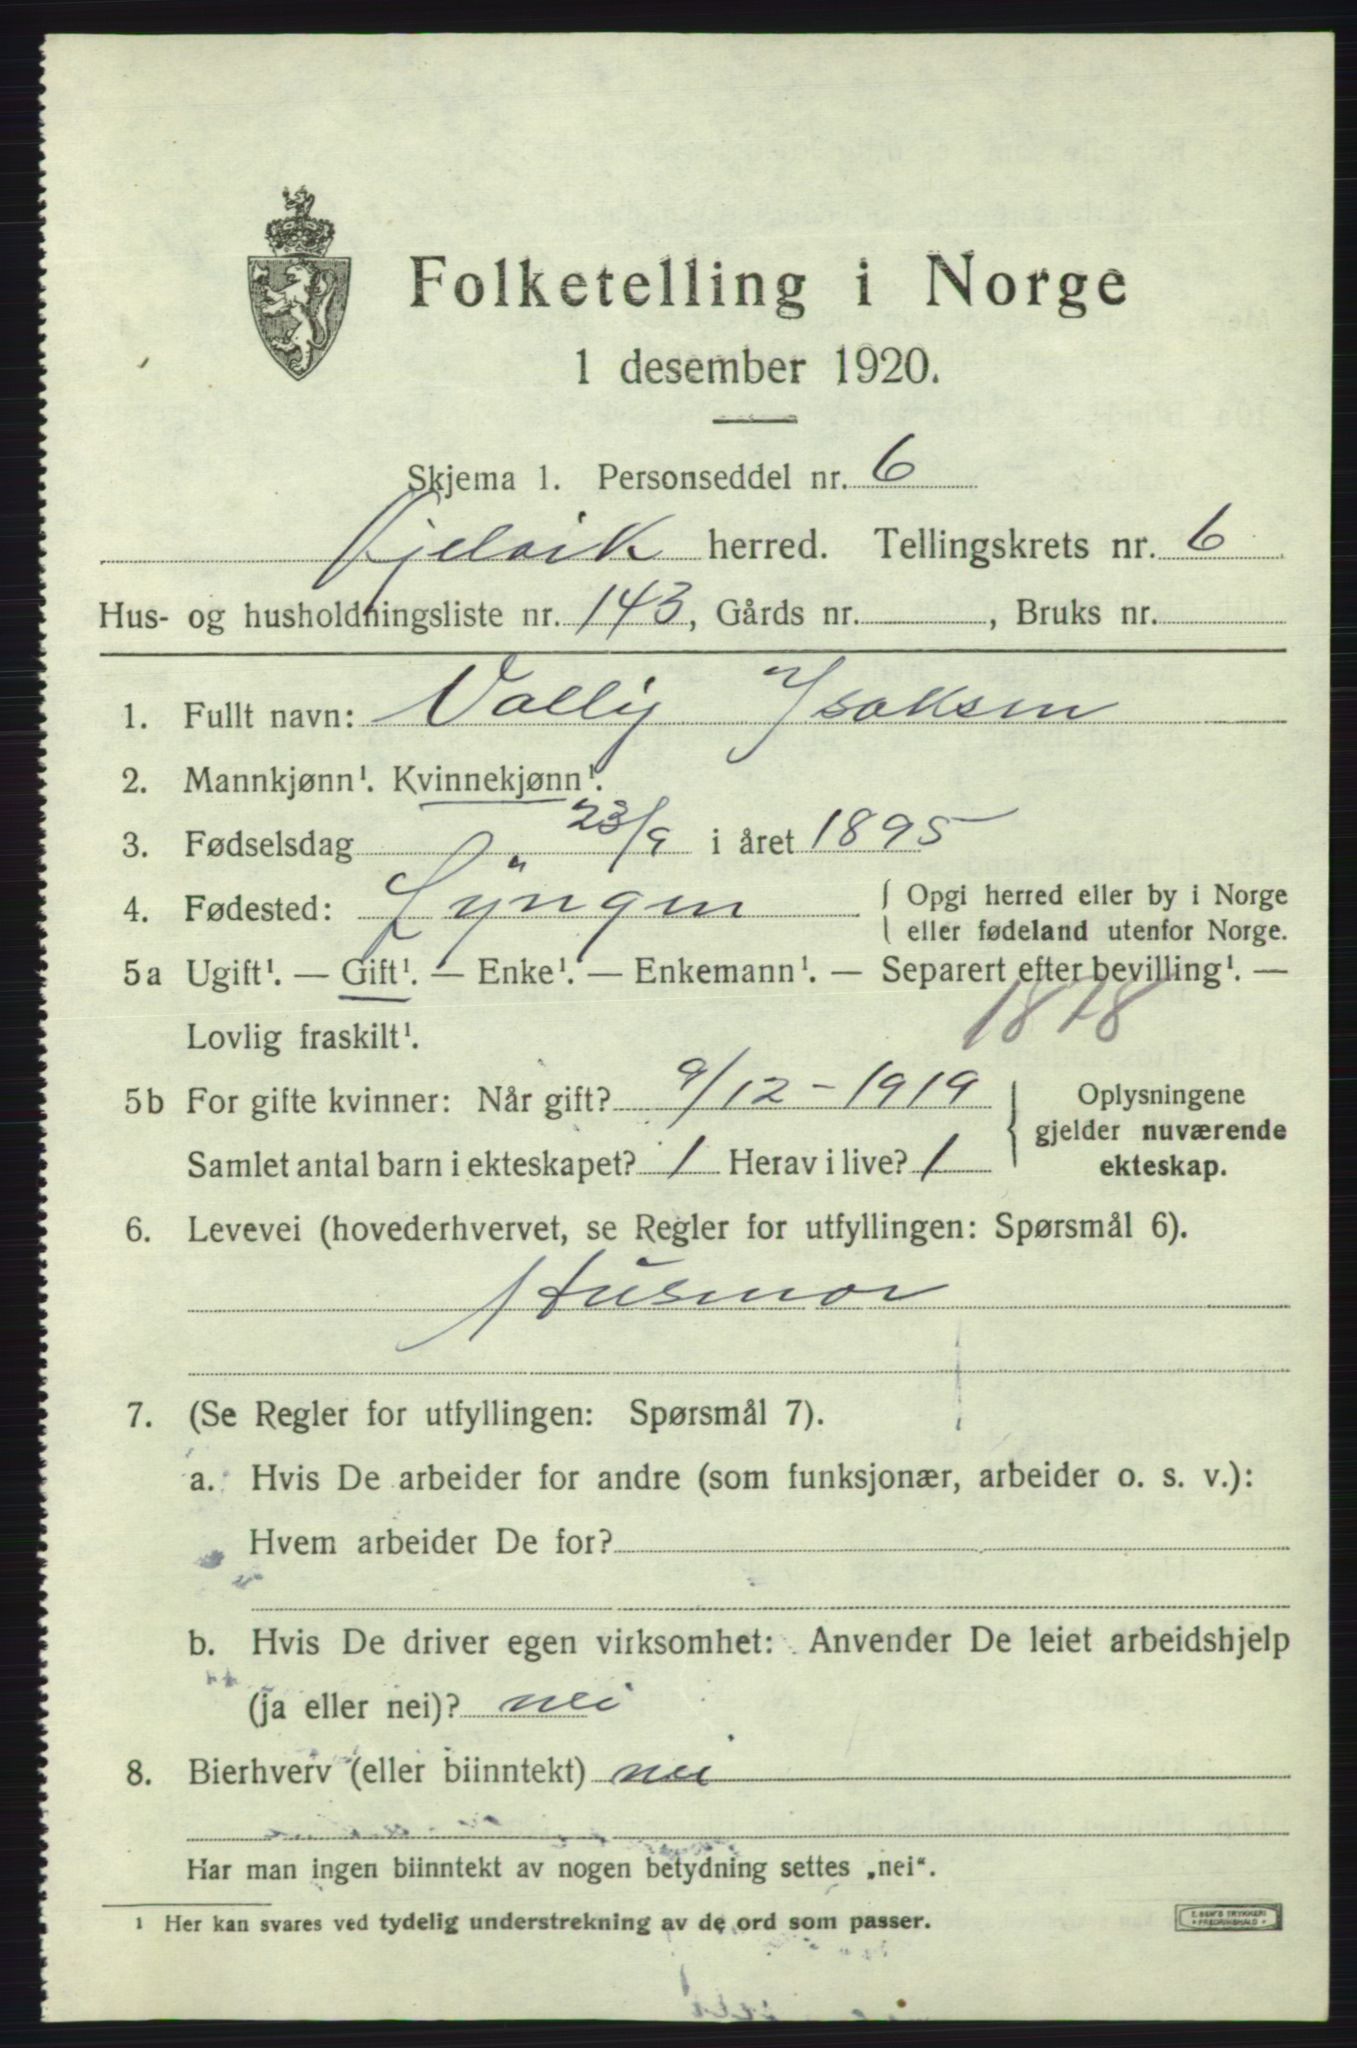 Folketelling i Norge
1 desember 1920.
Skjema 1. Personseddel nr. 6
Kjelvik herred. Tellingskrets nr. 6
Hus- og husholdningsliste nr. 143, Gårds nr. , Bruks nr.
1. Fullt navn: Vally Isaksen
2. Mannkjønn¹. Kvinnekjønn¹.
3. Fødselsdag 23/9 i året 1895
4. Fødested: Lyngen { Opgi herred eller by i Norge
eller fødeland utenfor Norge.
5a Ugift¹. — Gift¹. — Enke¹. — Enkemann¹. — Separert efter bevilling¹. —
Lovlig fraskilt¹. 1878
5b For gifte kvinner: Når gift? 9/12-1919 } Oplysningene
gjelder nuværende
Samlet antal barn i ekteskapet? 1 Herav i live? 1 ekteskap.
6. Levevei (hovederhvervet, se Regler for utfyllingen: Spørsmål 6).
Husmor
7. (Se Regler for utfyllingen: Spørsmål 7).
a. Hvis De arbeider for andre (som funksjonær, arbeider o. s. v.):
Hvem arbeider De for?
b. Hvis De driver egen virksomhet: Anvender De leiet arbeidshjelp
(ja eller nei)? nei
8. Bierhverv (eller biinntekt) nei
Har man ingen biinntekt av nogen betydning settes „nei“.
¹ Her kan svares ved tydelig understrekning av de ord som passer.